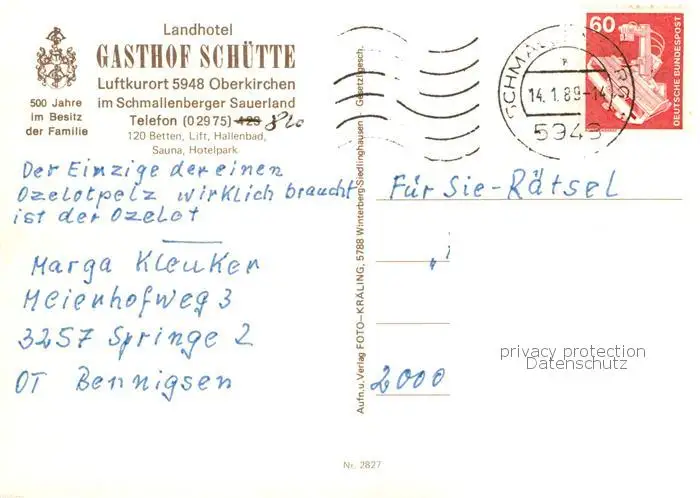 Landhotel
GASTHOF SCHÜTTE
Luftkurort 5948 Oberkirchen
im Schmallenberger Sauerland
Telefon (0 29 75) 429 820
120 Betten, Lift, Hallenbad,
Sauna, Hotelpark
500 Jahre
im Besitz
der Familie
Der Einzige der einen
Ozelotpelz wirklich braucht
ist der Ozelot
Marga Kleuker
Meienhofweg 3
3257 Springe 2
OT Bennigsen
Aufn. u. Verlag FOTO-KRÄLING, 5788 Winterberg-Siedlinghausen · Gesetzl. gesch.
14.1.89-14
5948
60
DEUTSCHE BUNDESPOST
Für Sie-Rätsel
2000
privacy protection
Datenschutz
Nr. 2827